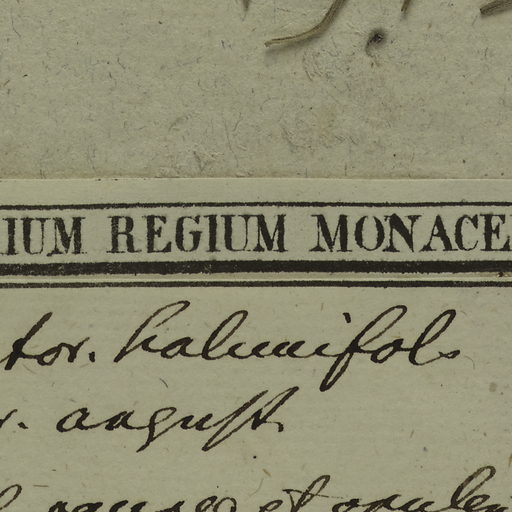 IUM REGIUM MONACE
tor. halimifol.
r. august.
et opulen